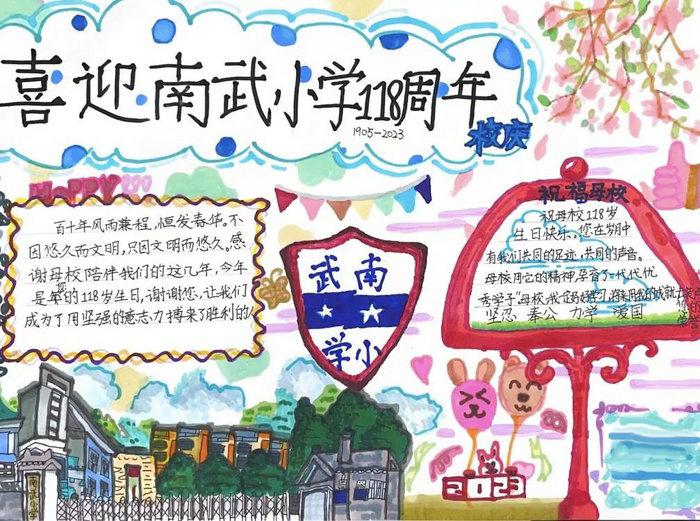 喜迎南武小学118周年
1905-2023
校庆
HAPPY
百十年风雨兼程,恒发春华。不
因悠久而文明,只因文明而悠久。感
谢母校陪伴我们的这几年,今年
是您的118岁生日,谢谢您,让我们
成为了用坚强的意志力搏来了胜利的人
南武
小学
祝福母校
祝母校118岁
生日快乐,您在朔中
有我们共同的足迹,共同的声音。
母校用它的精神孕育了一代代优
秀学子
坚忍 奉公 力学 爱国
2023
南武小学